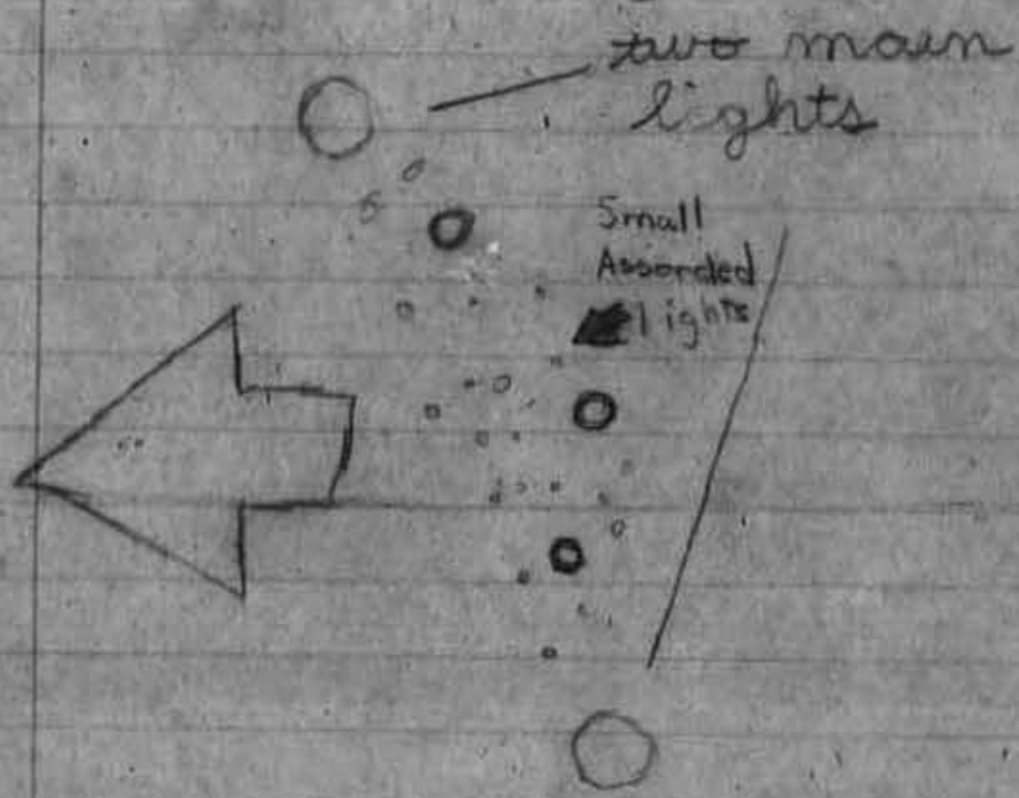 two main
lights
Small
Assorded
lights